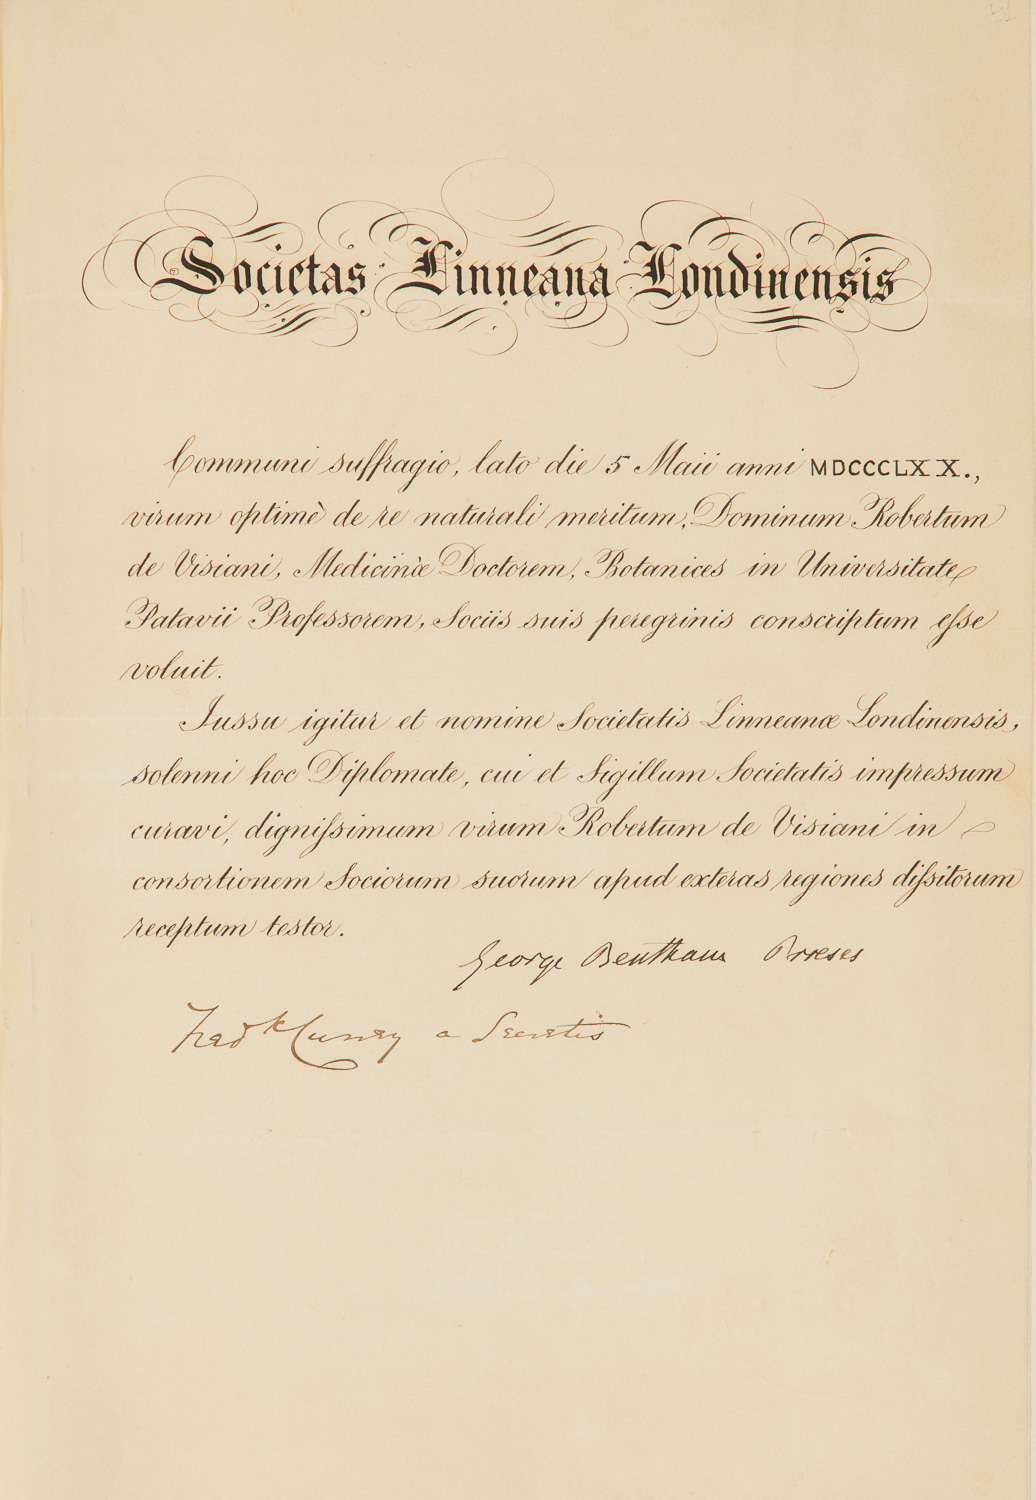 Societas Linneana Londinensis
Communi suffragio, lato die 5 Maii anni MDCCCLXX.,
virum optimè de re naturali meritum, Dominum Robertum
de Visiani, Medicinæ Doctorem, Botanices in Universitate
Patavii Professorem, Sociis suis peregrinis conscriptum esse
voluit.
Jussu igitur et nomine Societatis Linneanæ Londinensis,
solenni hoc Diplomate, cui et Sigillum Societatis impressum
curavi, dignissimum virum Robertum de Visiani in
consortionem Sociorum suorum apud exteras regiones dissitorum
receptum testor.
George Bentham Præses
Fredk Currey a Secretis